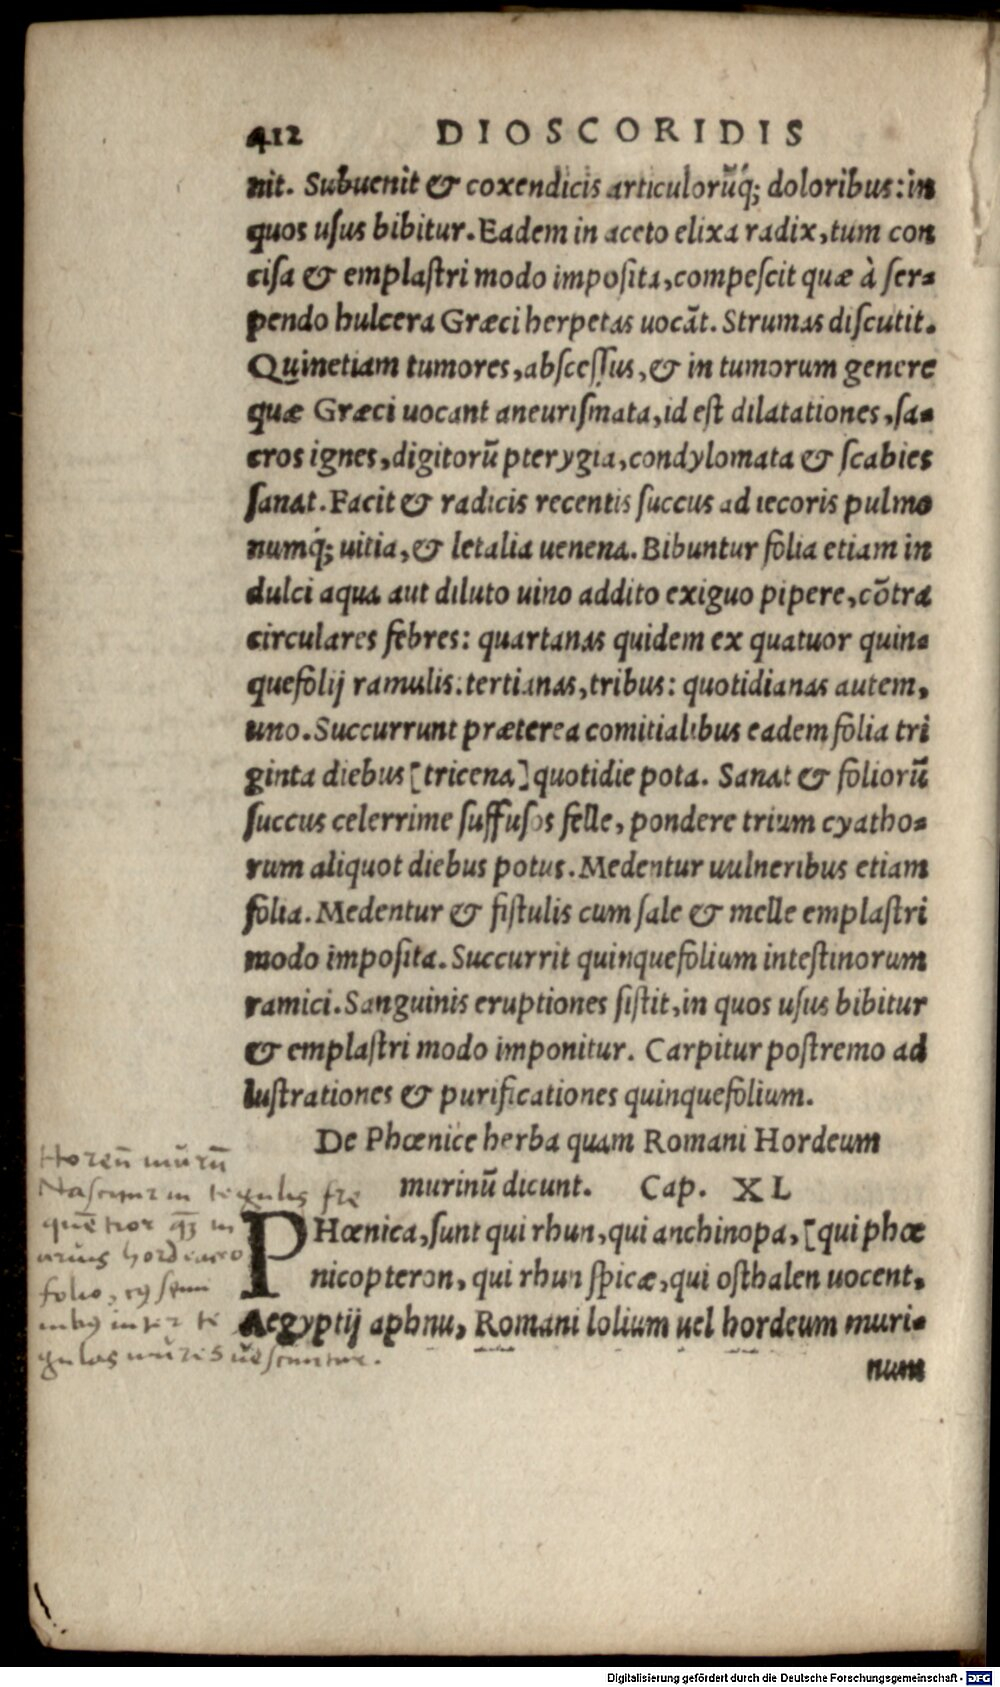 412 DIOSCORIDIS
nit. Subuenit & coxendicis articulorũq́; doloribus: in
quos uſus bibitur. Eadem in aceto elixa radix, tum con
ciſa & emplaſtri modo impoſita, compeſcit quæ à ſer-
pendo hulcera Græci herpetas uocãt. Strumas diſcutit.
Quinetiam tumores, abſceſſus, & in tumorum genere
quæ Græci uocant aneuriſmata, id eſt dilatationes, ſa-
cros ignes, digitorũ pterygia, condylomata & ſcabies
ſanat. Facit & radicis recentis ſuccus ad iecoris pulmo
numq́; uitia, & letalia uenena. Bibuntur folia etiam in
dulci aqua aut diluto uino addito exiguo pipere, cõtra
circulares febres: quartanas quidem ex quatuor quin-
quefolij ramulis: tertianas, tribus: quotidianas autem,
uno. Succurrunt præterea comitialibus eadem folia tri
ginta diebus [tricena] quotidie pota. Sanat & foliorũ
ſuccus celerrime ſuffuſos felle, pondere trium cyatho-
rum aliquot diebus potus. Medentur uulneribus etiam
folia. Medentur & fiſtulis cum ſale & melle emplaſtri
modo impoſita. Succurrit quinquefolium inteſtinorum
ramici. Sanguinis eruptiones ſiſtit, in quos uſus bibitur
& emplaſtri modo imponitur. Carpitur poſtremo ad
luſtrationes & purificationes quinquefolium.
De Phœnice herba quam Romani Hordeum
murinũ dicunt. Cap. XL
PHœnica, ſunt qui rhun, qui anchinopa, [qui phœ
nicopteron, qui rhun ſpicæ, qui oſthalen uocent,
Aegyptij aphnu, Romani lolium uel hordeum muri-
num
murũ
Nascitur in tegulis fre
quẽtior in
aruis hordeaceo
folio,
inter te
gulas mũres
Digitalisierung gefördert durch die Deutsche Forschungsgemeinschaft - DFG